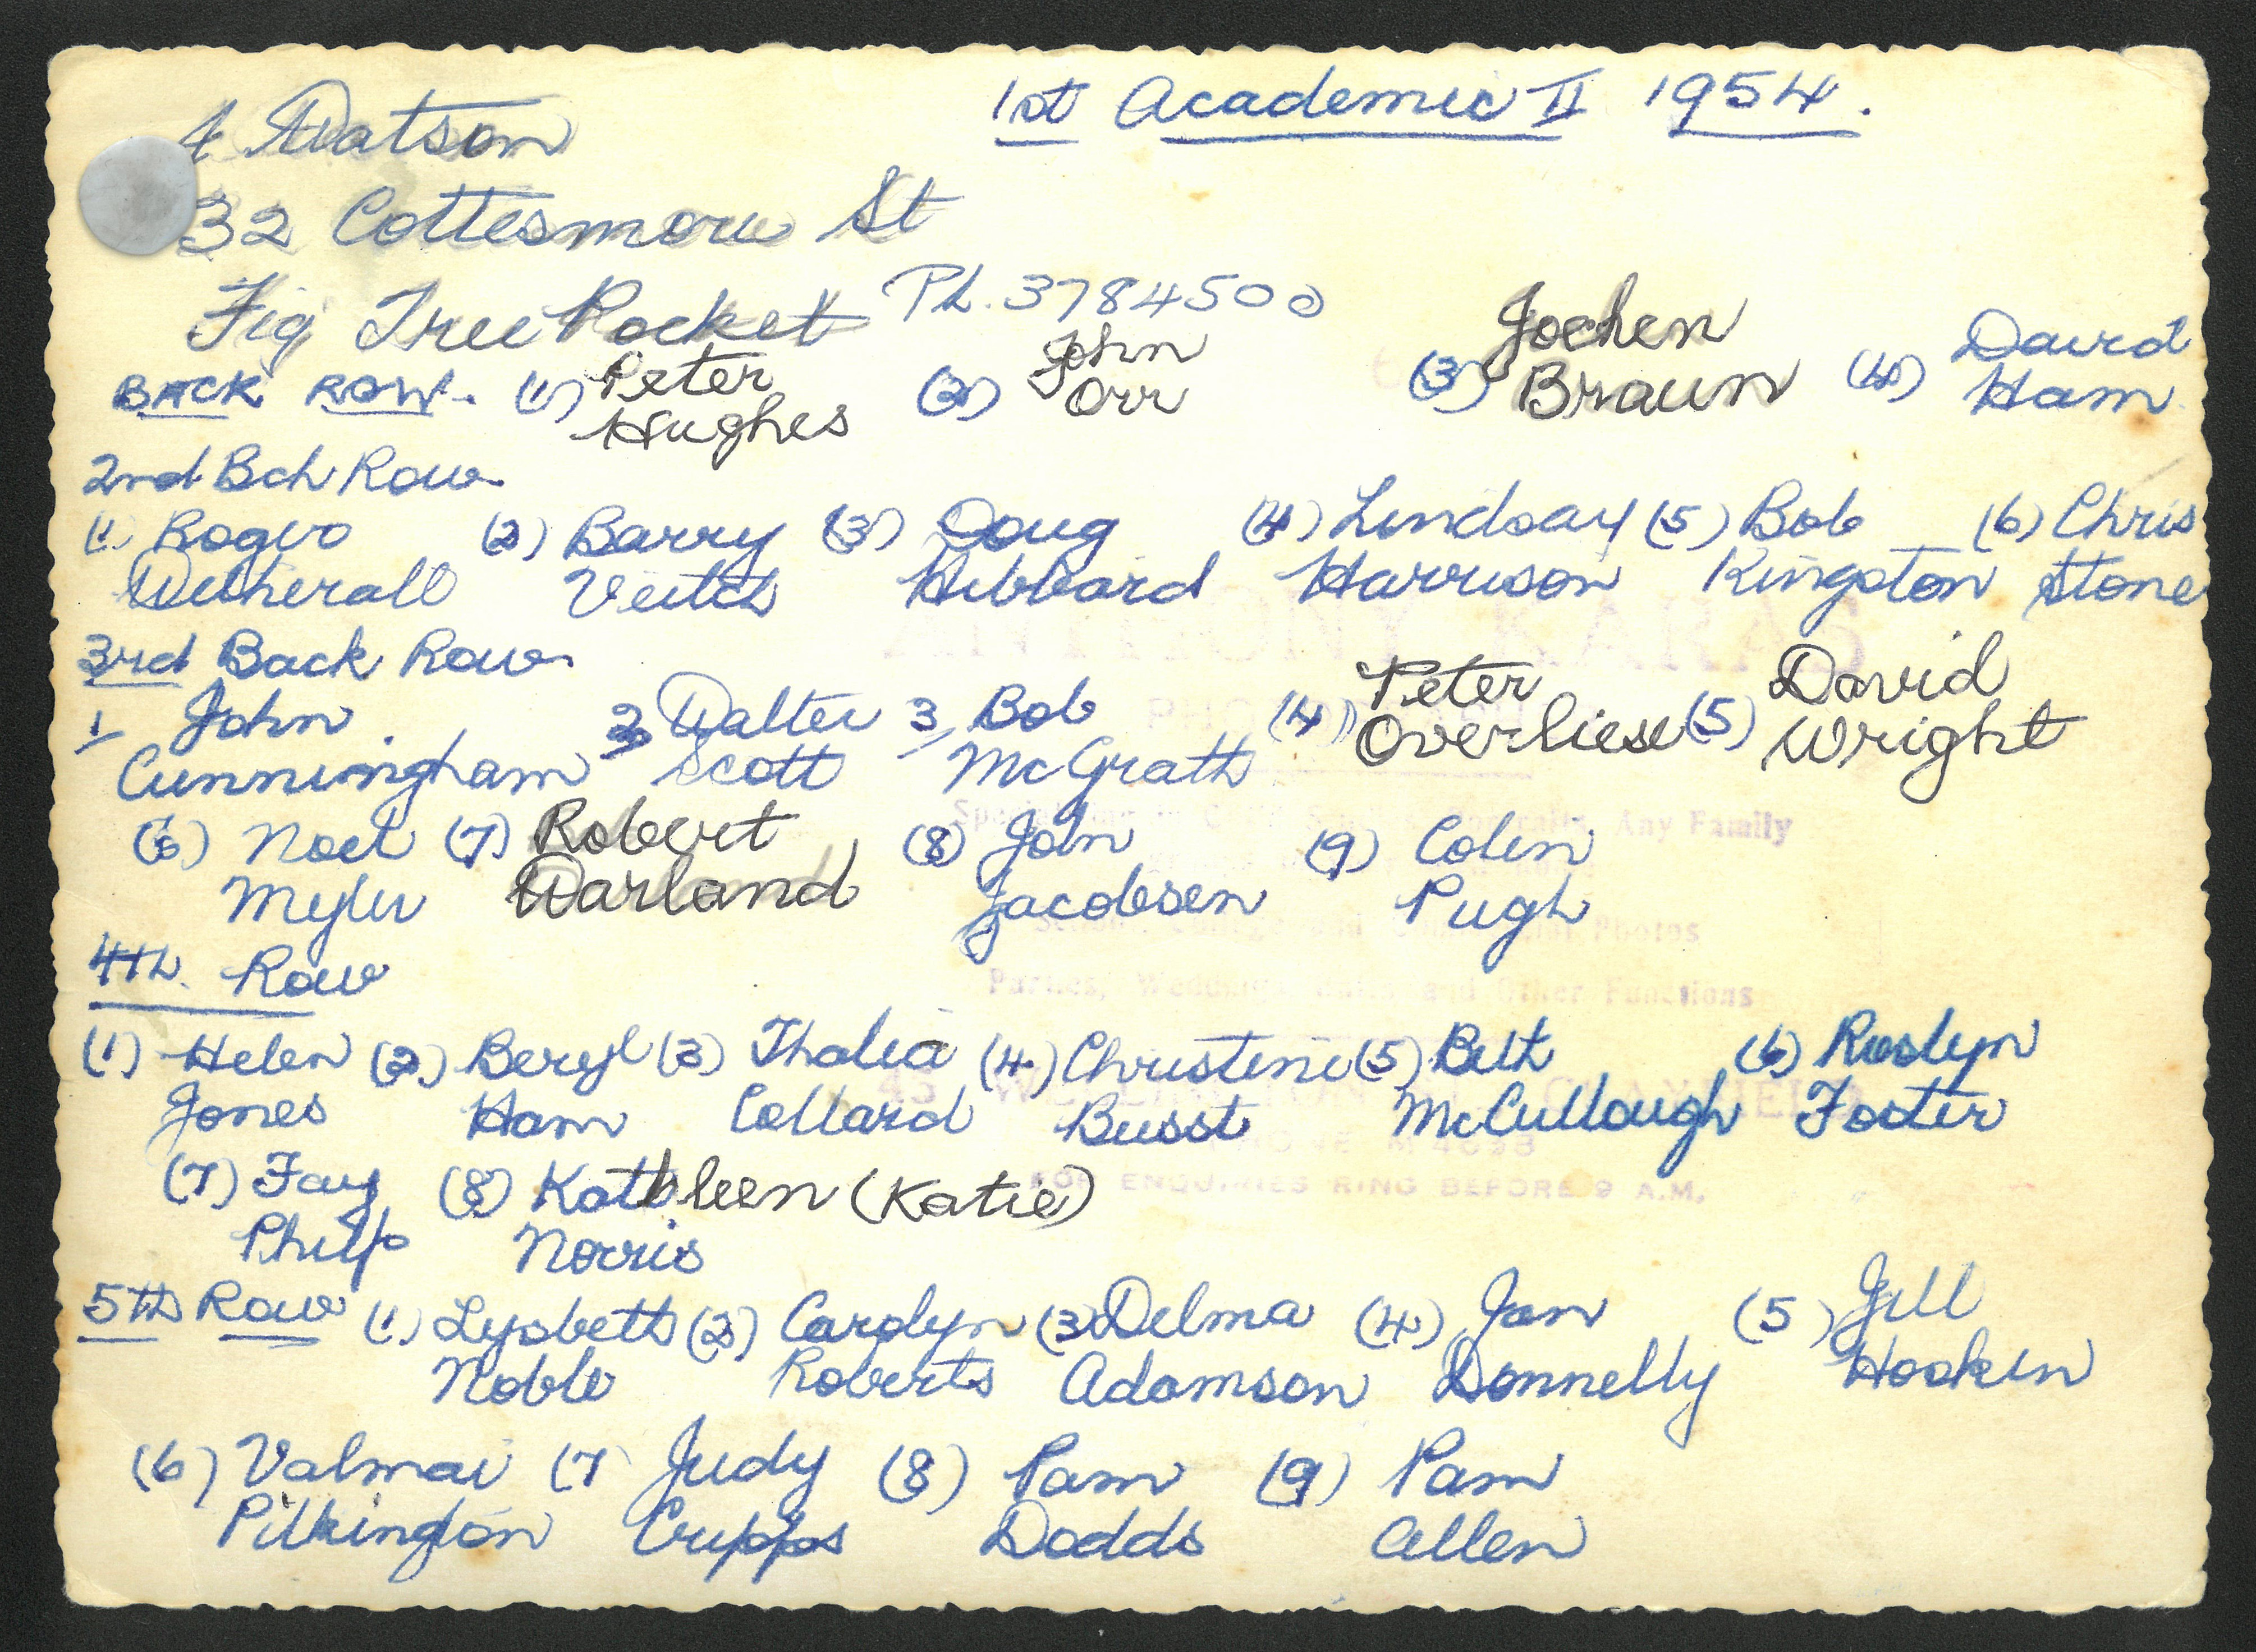 1st Academic II 1954.
A Watson
32 Cottesmore St
Fig Tree Pocket Ph. 3784500
BACK ROW. (1) Peter Hughes (2) John Orr (3) Jochen Braun (4) David Ham
2nd Bck Row
(1) Roger Wetherall (2) Barry Veitch (3) Doug Hibbard (4) Lindsay Harrison (5) Bob Kingston (6) Chris Stone
3rd Back Row
1 John Cunningham 2 Walter Scott 3 Bob McGrath (4) Peter Overliese (5) David Wright
(6) Noel Myler (7) Robert Warland (8) Jon Jacobsen (9) Colin Pugh
4th. Row
(1) Helen Jones (2) Beryl Ham (3) Thalia Collard (4) Christine Busst (5) Beth McCullough (6) Roslyn Foster
(7) Fay Philp (8) Kathleen (Katie) Norris
5th Row (1) Lysbeth Noble (2) Carolyn Roberts (3) Delma Adamson (4) Jan Donnelly (5) Jill Hosken
(6) Valmai Pilkington (7) Judy Cripps (8) Pam Dodds (9) Pam Allen
ANTHONY KARAS
Any Family
Photos
Parties, Weddings, and Other Functions
FOR ENQUIRIES RING BEFORE 9 A.M.